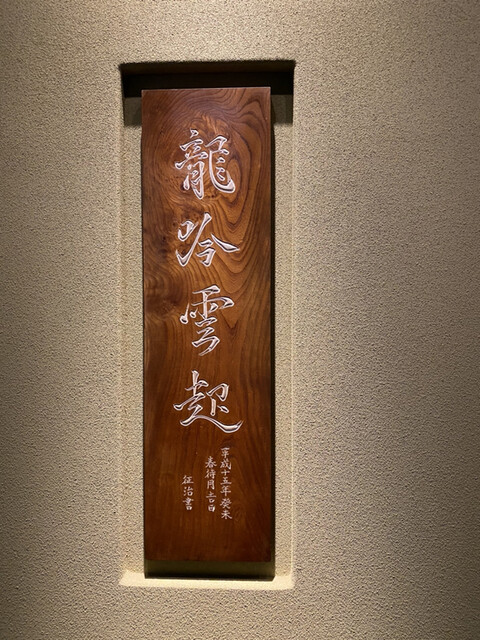 龍吟雲起
平成十五年癸未
春待月吉日
征治書